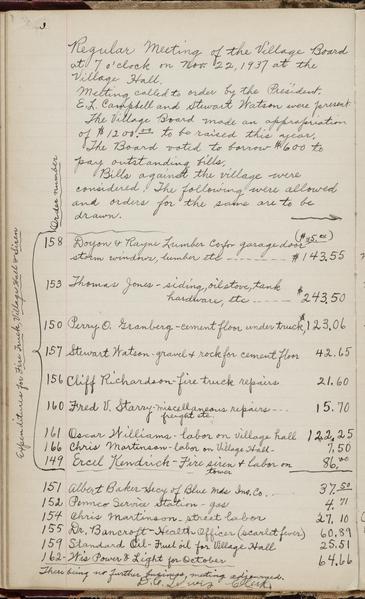 3
Regular Meeting of the Village Board
at 7 o'clock on Nov. 22, 1937 at the
Village Hall.
Meeting called to order by the President.
E.L. Campbell and Stewart Watson were present
The Village Board made an appropriation
of $1200.00 to be raised this year.
The Board voted to borrow $600 to
pay outstanding bills.
Bills against the village were
considered. The following were allowed
and orders for the same are to be
drawn.
Order number
Expenditures for Fire Truck, Village Hall & Siren
($45.00)
158 Doyon & Rayne Lumber Co. for garage door
storm windows, lumber etc --- $143.55
153 Thomas Jones - siding, oil stove, tank
hardware, etc ---- $243.50
150 Perry O. Granberg - cement floor under truck, $123.06
157 Stewart Watson - gravel & rock for cement floor 42.65
156 Cliff Richardson - fire truck repairs 21.60
160 Fred V. Starry - miscellaneous repairs --- 15.70
freight etc.
161 Oscar Williams - labor on Village hall 122.25
166 Chris Martinson - labor on Village Hall - 7.50
149 Ercel Kendrick - Fire siren & labor on 86.00
tower
151 Albert Baker - Secy of Blue Mds Ins. Co. . 37.50
152 Pemco Service Station - gas 4.71
154 Chris Martinson - street labor 27.10
155 Dr. Bancroft - Health Officer (scarlet fever) 60.89
159 Standard Oil - Fuel oil for Village Hall 25.51
162 - Wis Power & Light for October 64.66
There being no further business, meeting adjourned.
Clerk